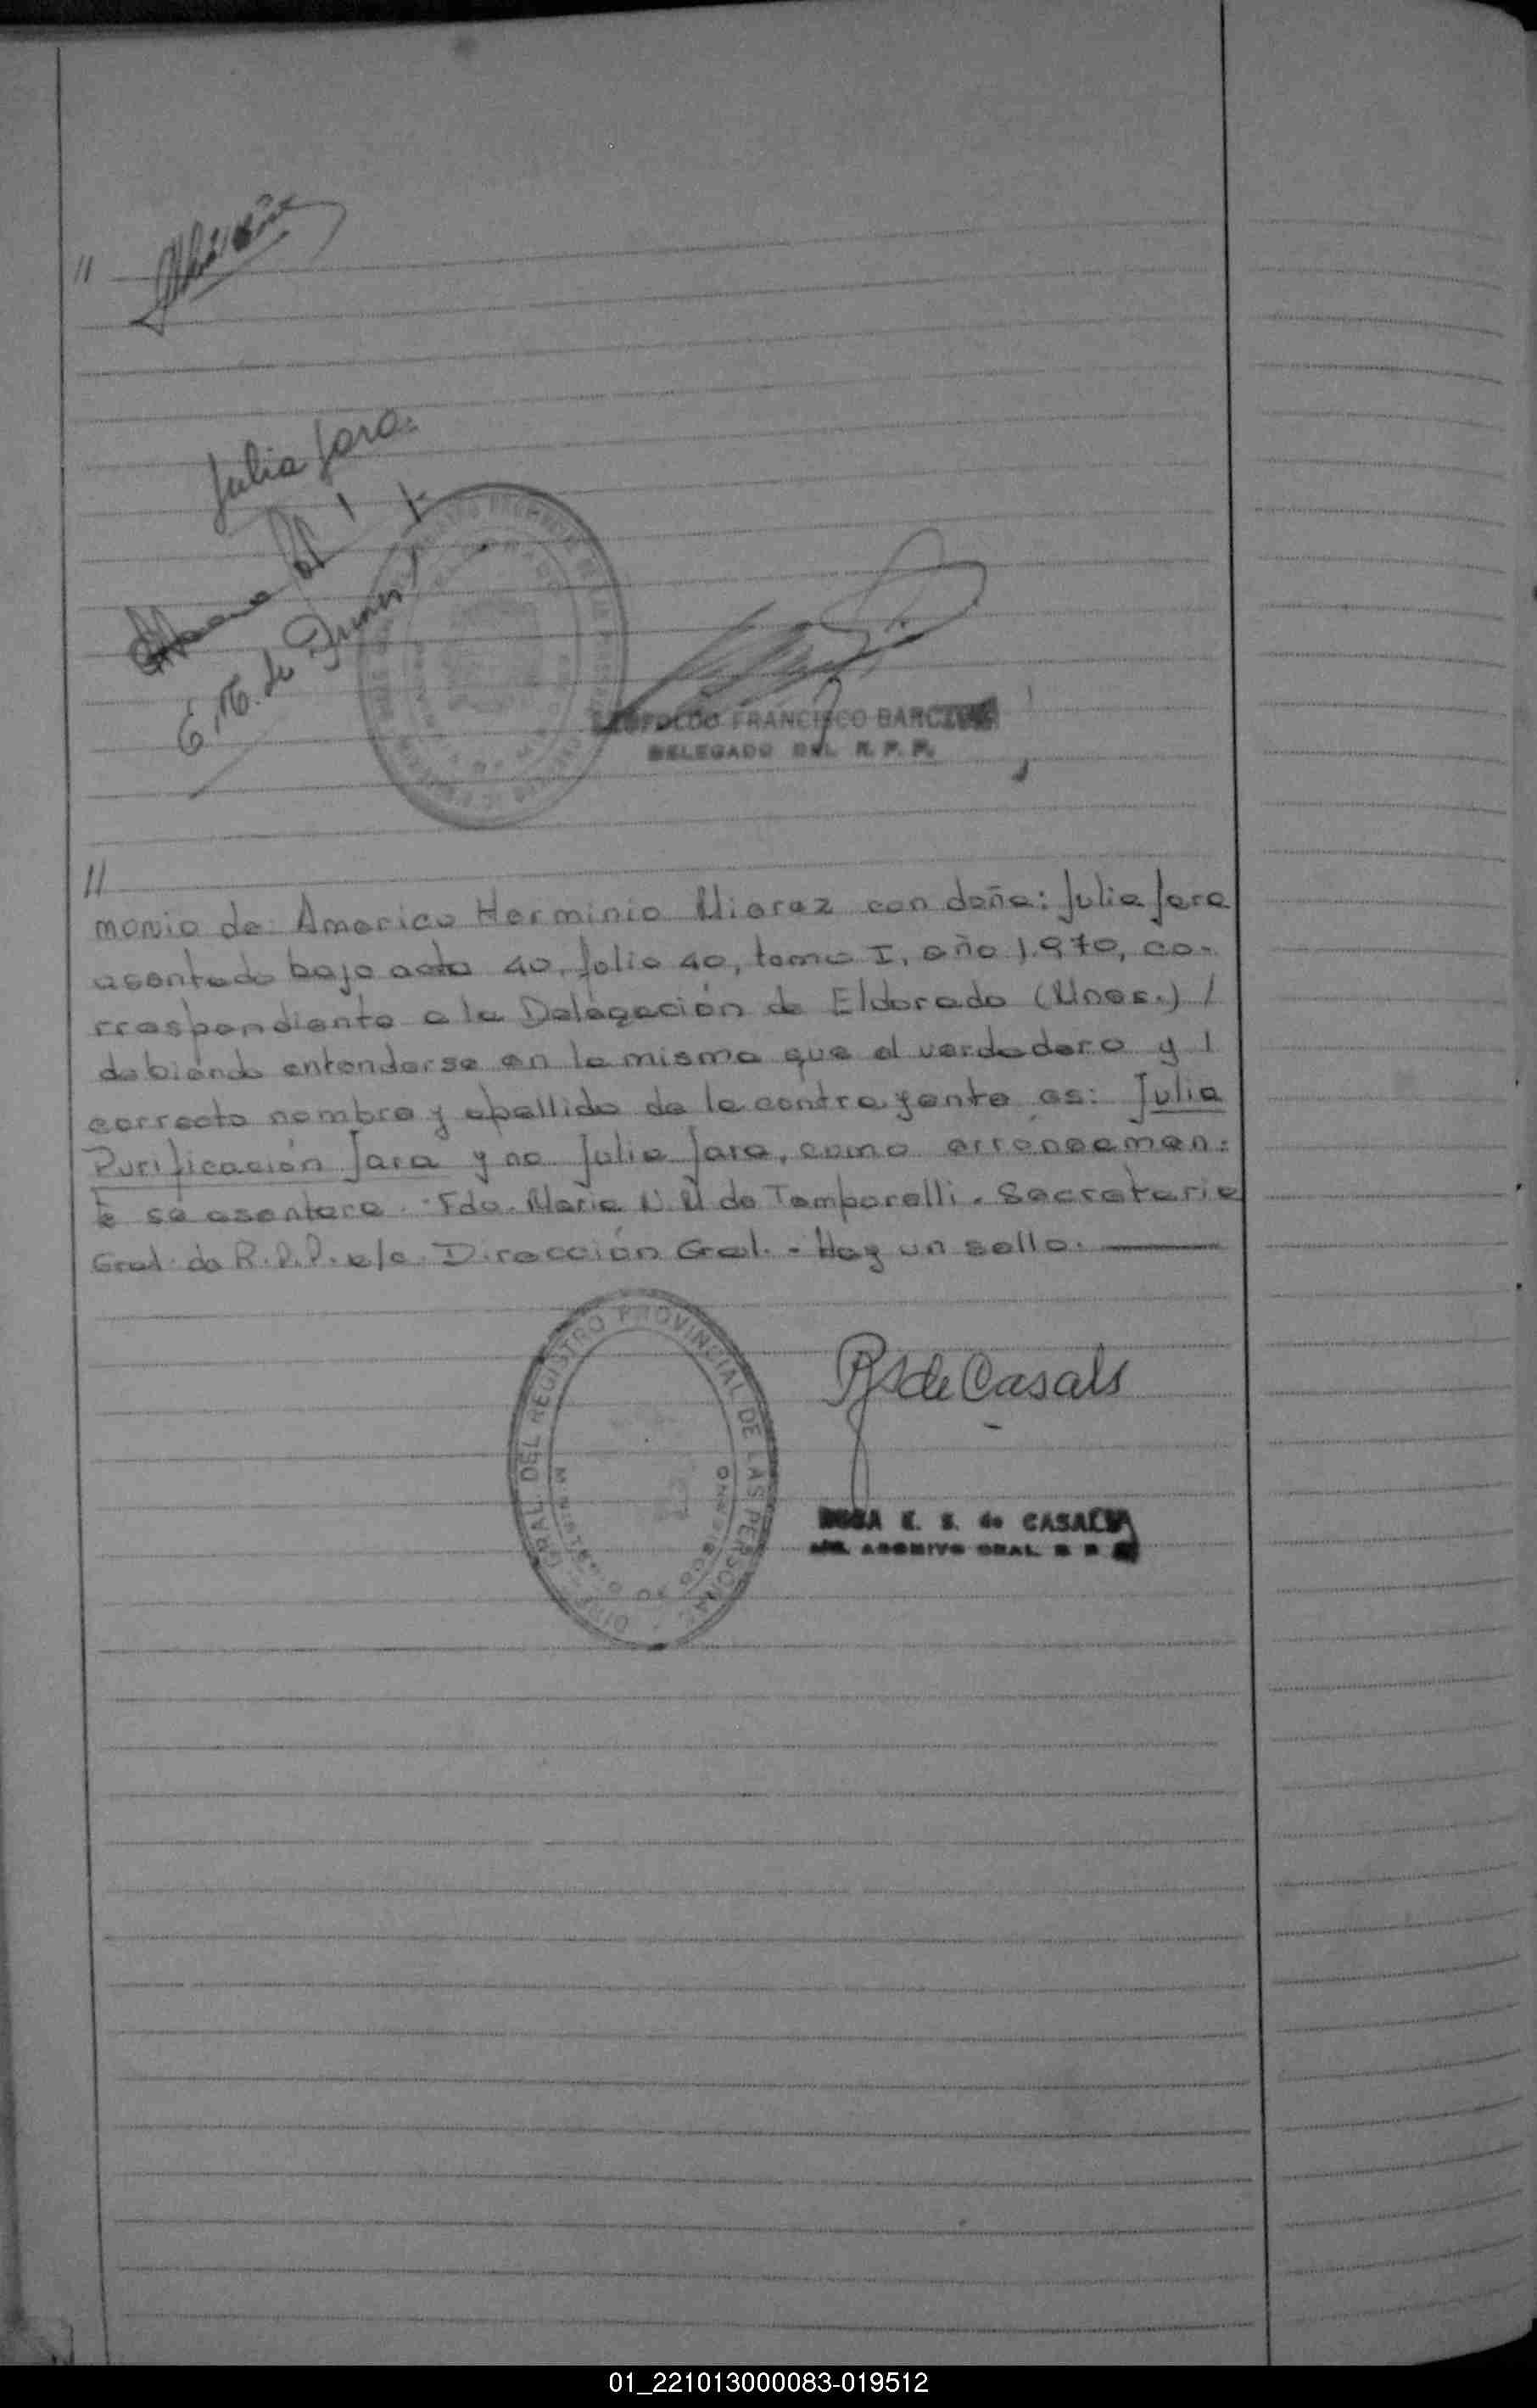 //
Julia Jara.
E. M. de
LEOPOLDO FRANCISCO
DELEGADO DEL R. P. P.
//
monio de: Americo Herminio con doña: Julia Jara
asentado bajo acta 40, folio 40, tomo I, año 1.970, co-
rrespondiente a la Delegación de Eldorado (Mnes.) /
debiéndo entenderse en la misma que el verdadero y /
correcto nombre y apellido de la contrayente es: Julia
Purificación Jara y no Julia Jara, como erróneamen=
te se asentara. Fdo. Maria de Temporelli. Secretaria
Gral. de R.P.P. a/c. Dirección Gral. - Hay un sello.
GRAL. DEL REGISTRO PROVINCIAL DE LAS PERSONAS
MINISTERIO DE GOBIERNO
R S de Casals
ROSA E. S. de CASALS
ARCHIVO GRAL R P P
01_221013000083-019512